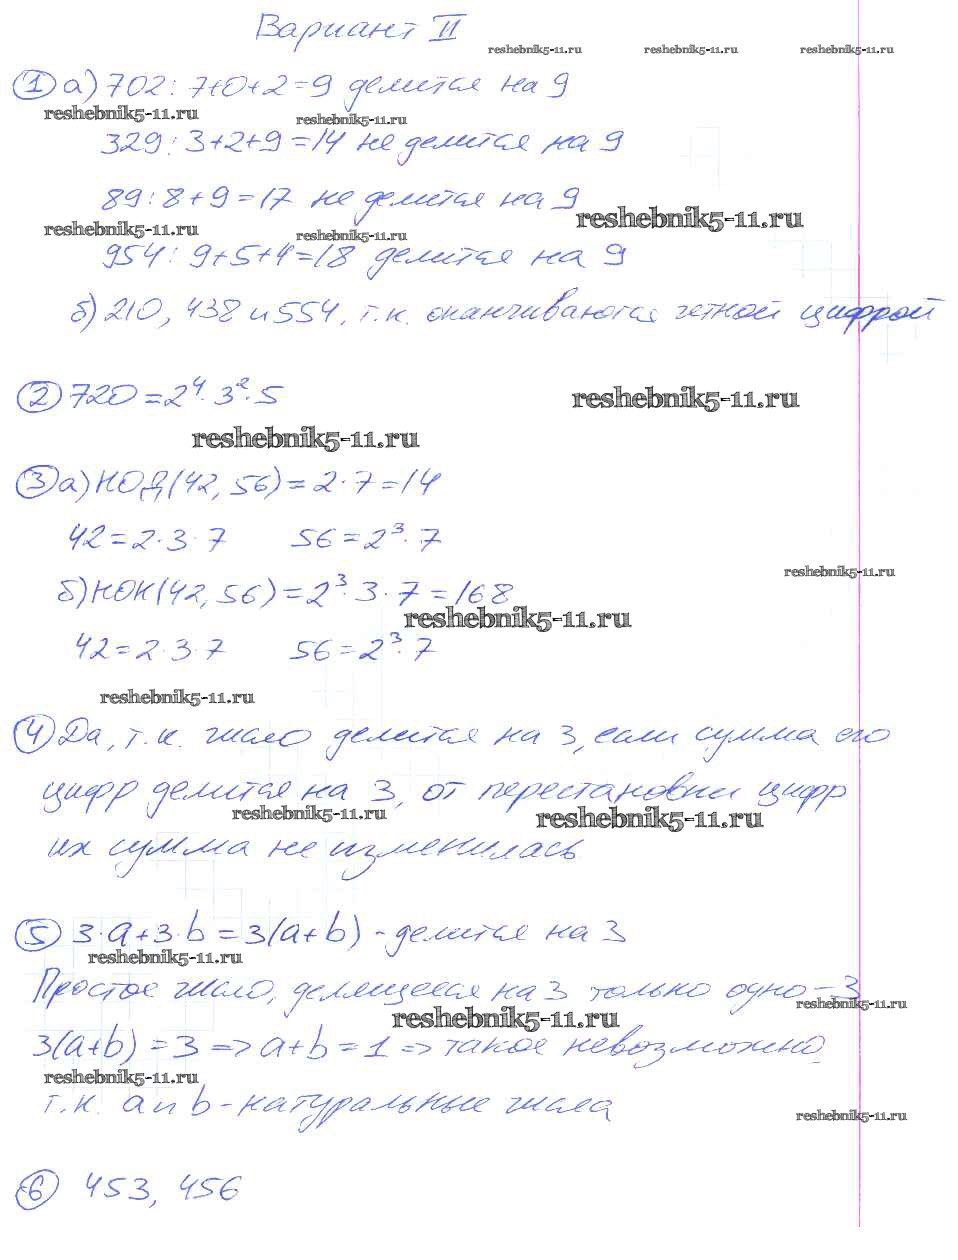 Вариант II
reshebnik5-11.ru reshebnik5-11.ru reshebnik5-11.ru
① а) 702: 7+0+2=9 делится на 9
reshebnik5-11.ru reshebnik5-11.ru
329: 3+2+9=14 не делится на 9
89: 8+9=17 не делится на 9
reshebnik5-11.ru reshebnik5-11.ru reshebnik5-11.ru
954: 9+5+4=18 делится на 9
б) 210, 438 и 554, т.к. оканчиваются четной цифрой
② 720=2⁴·3²·5
reshebnik5-11.ru
reshebnik5-11.ru
③ а) НОД(42, 56)=2·7=14
42=2·3·7 56=2³·7
reshebnik5-11.ru
б) НОК(42, 56)=2³·3·7=168
reshebnik5-11.ru
42=2·3·7 56=2³·7
reshebnik5-11.ru
④ Да, т.к. число делится на 3, если сумма его
цифр делится на 3, от перестановки цифр
reshebnik5-11.ru reshebnik5-11.ru
их сумма не изменилась
⑤ 3·a+3·b=3(a+b) - делится на 3
reshebnik5-11.ru
Простое число, делящееся на 3 только одно - 3
reshebnik5-11.ru
reshebnik5-11.ru
3(a+b)=3=>a+b=1=>такое невозможно
reshebnik5-11.ru
т.к. a и b - натуральные числа
reshebnik5-11.ru
⑥ 453, 456